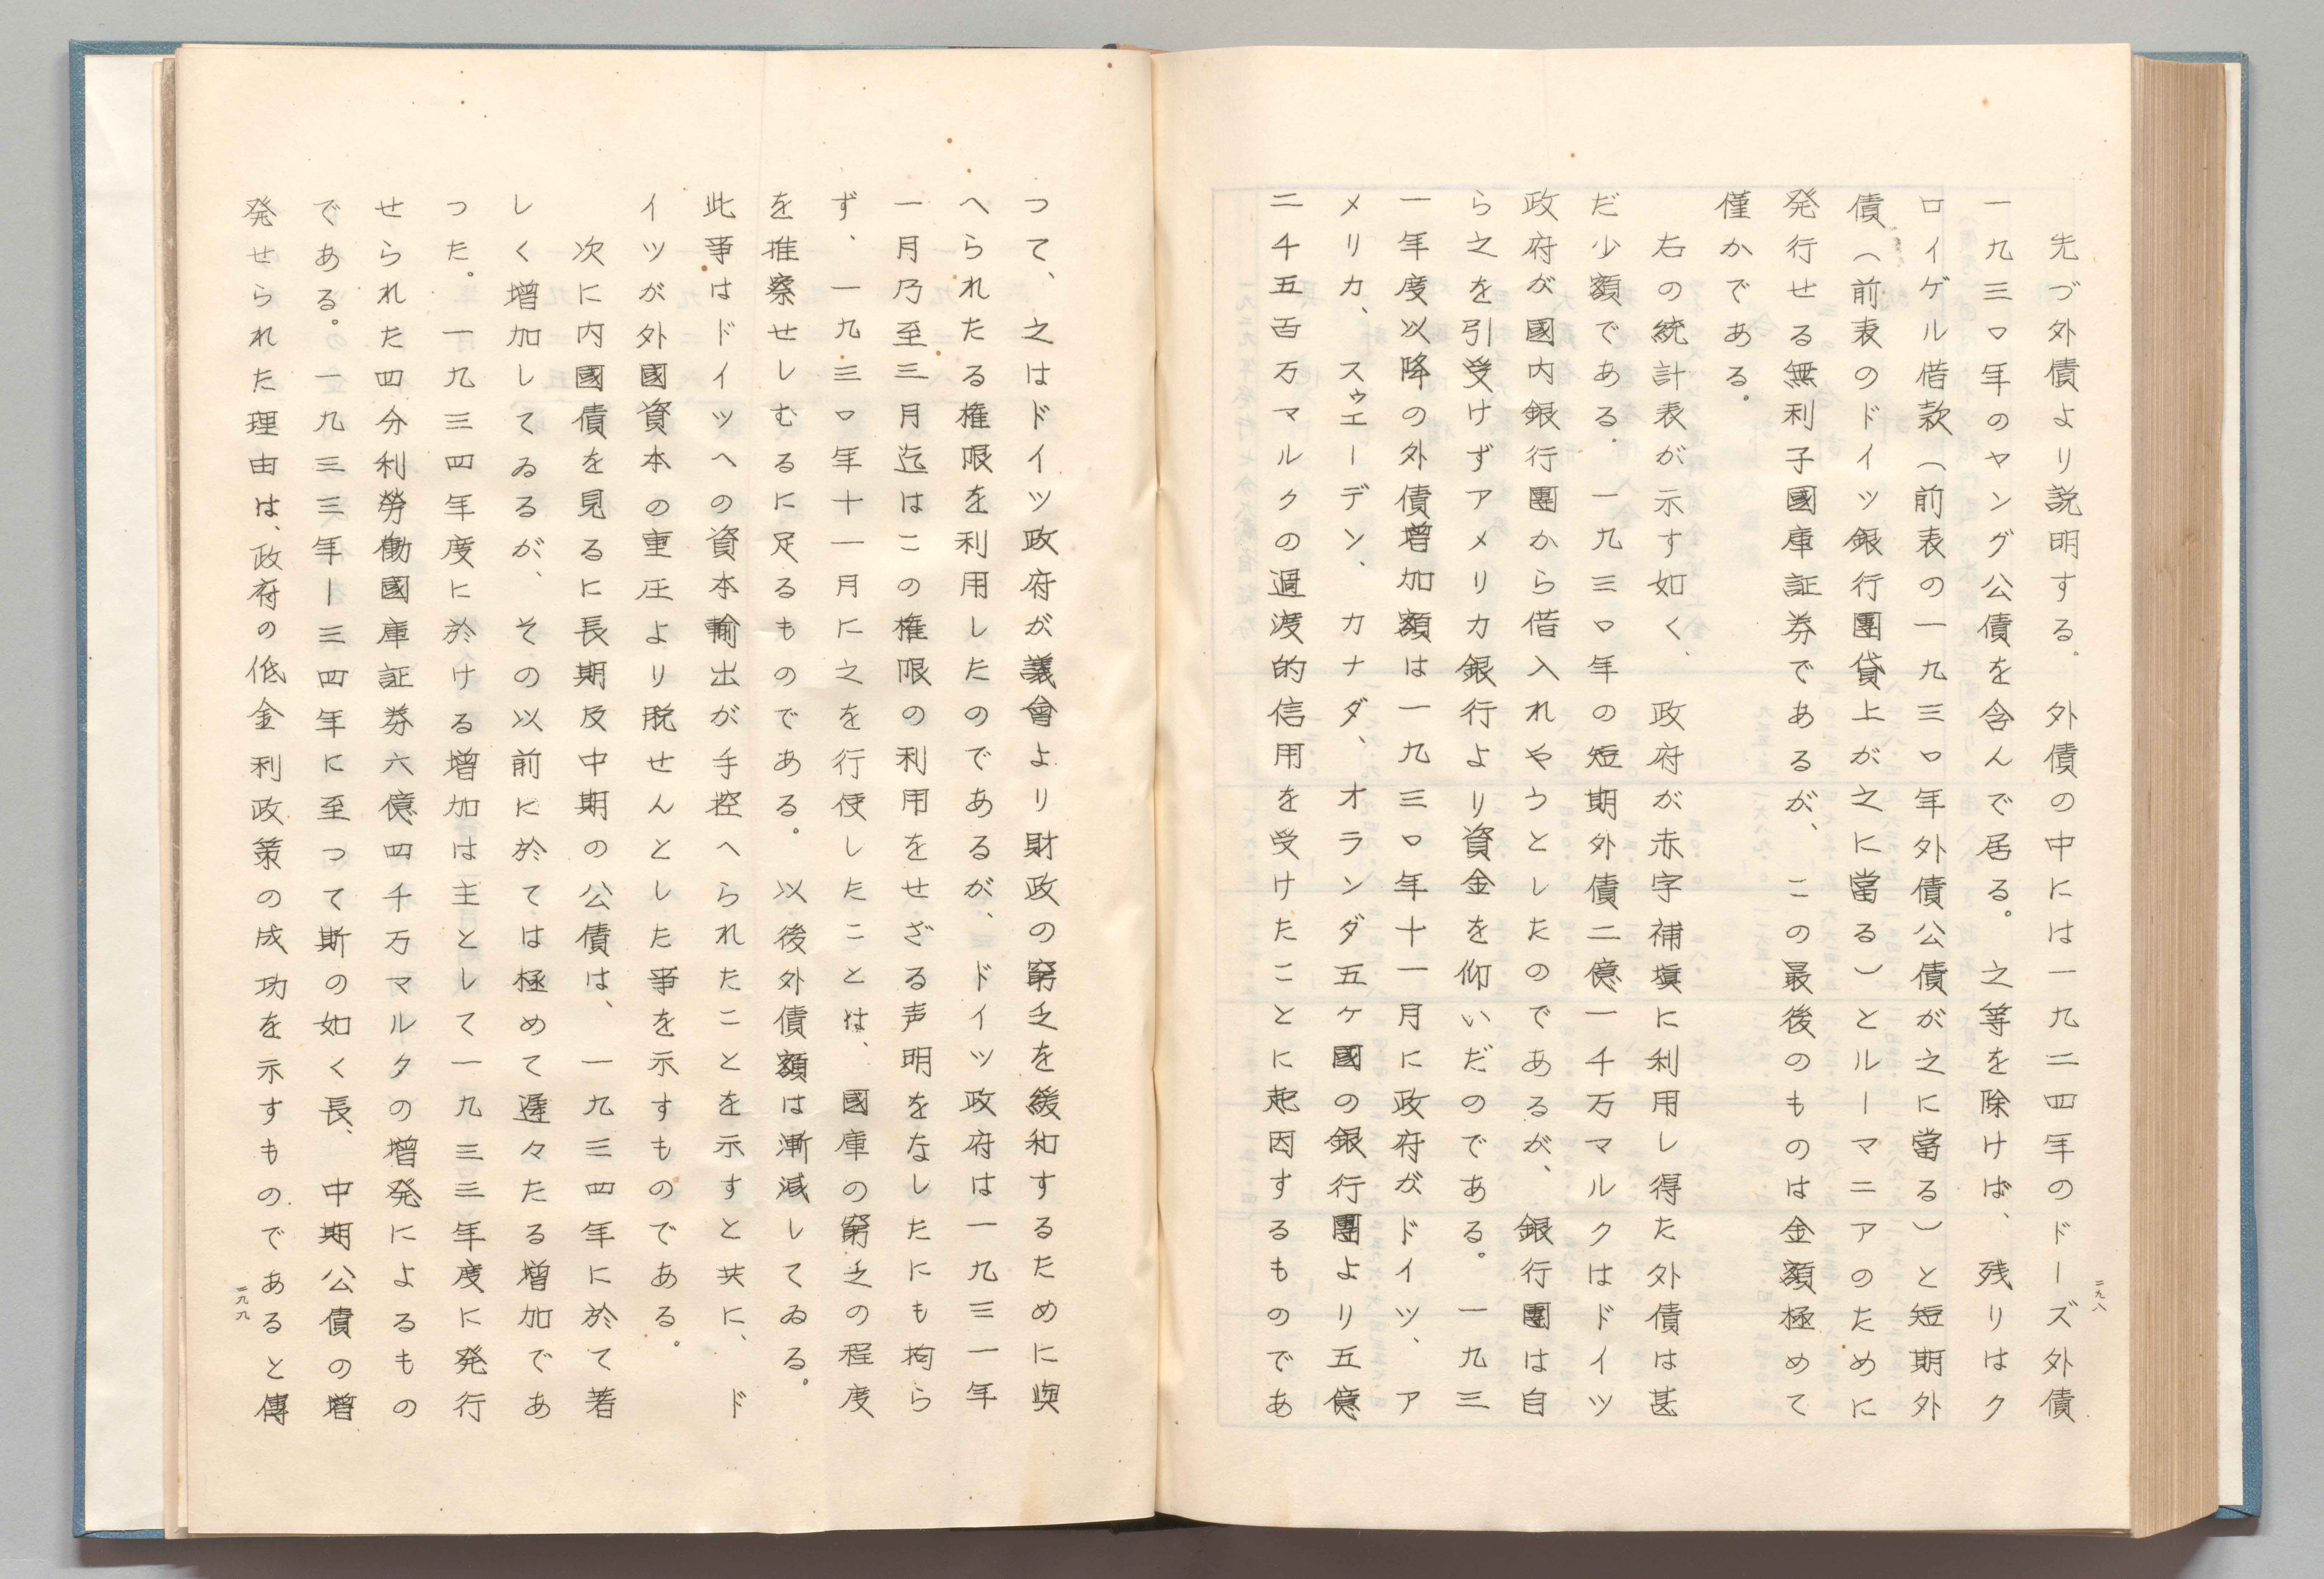 二九八
先づ外債より説明する。外債の中には一九二四年のドーズ外債
一九三〇年のヤング公債を含んで居る。之等を除けば、残りはク
ロイゲル借款（前表の一九三〇年外債公債が之に當る）と短期外
債（前表のドイツ銀行團貸上が之に當る）とルーマニアのために
発行せる無利子國庫証券であるが、この最後のものは金額極めて
僅かである。
右の統計表が示す如く、政府が赤字補塡に利用し得た外債は甚
だ少額である。一九三〇年の短期外債二億一千万マルクはドイツ
政府が國内銀行團から借入れやうとしたのであるが、銀行團は自
ら之を引受けずアメリカ銀行より資金を仰いだのである。一九三
一年度以降の外債増加額は一九三〇年十一月に政府がドイツ、ア
メリカ、スゥエーデン、カナダ、オランダ五ヶ國の銀行團より五億
二千五百万マルクの過渡的信用を受けたことに起因するものであ
つて、之はドイツ政府が議會より財政の窮乏を緩和するために與
へられたる権限を利用したのであるが、ドイツ政府は一九三一年
一月乃至三月迄はこの権限の利用をせざる声明をなしたにも拘ら
ず、一九三〇年十一月に之を行使したことは、國庫の窮乏の程度
を推察せしむるに足るものである。以後外債額は漸減してゐる。
此事はドイツへの資本輸出が手控へられたことを示すと共に、ド
イツが外國資本の重圧より脱せんとした事を示すものである。
次に内國債を見るに長期及中期の公債は、一九三四年に於て著
しく増加してゐるが、その以前に於ては極めて遅々たる増加であ
つた。一九三四年度に於ける増加は主として一九三三年度に発行
せられた四分利勞働國庫証券六億四千万マルクの増発によるもの
である。一九三三年ー三四年に至つて斯の如く長、中期公債の増
発せられた理由は、政府の低金利政策の成功を示すものであると傳
二九九